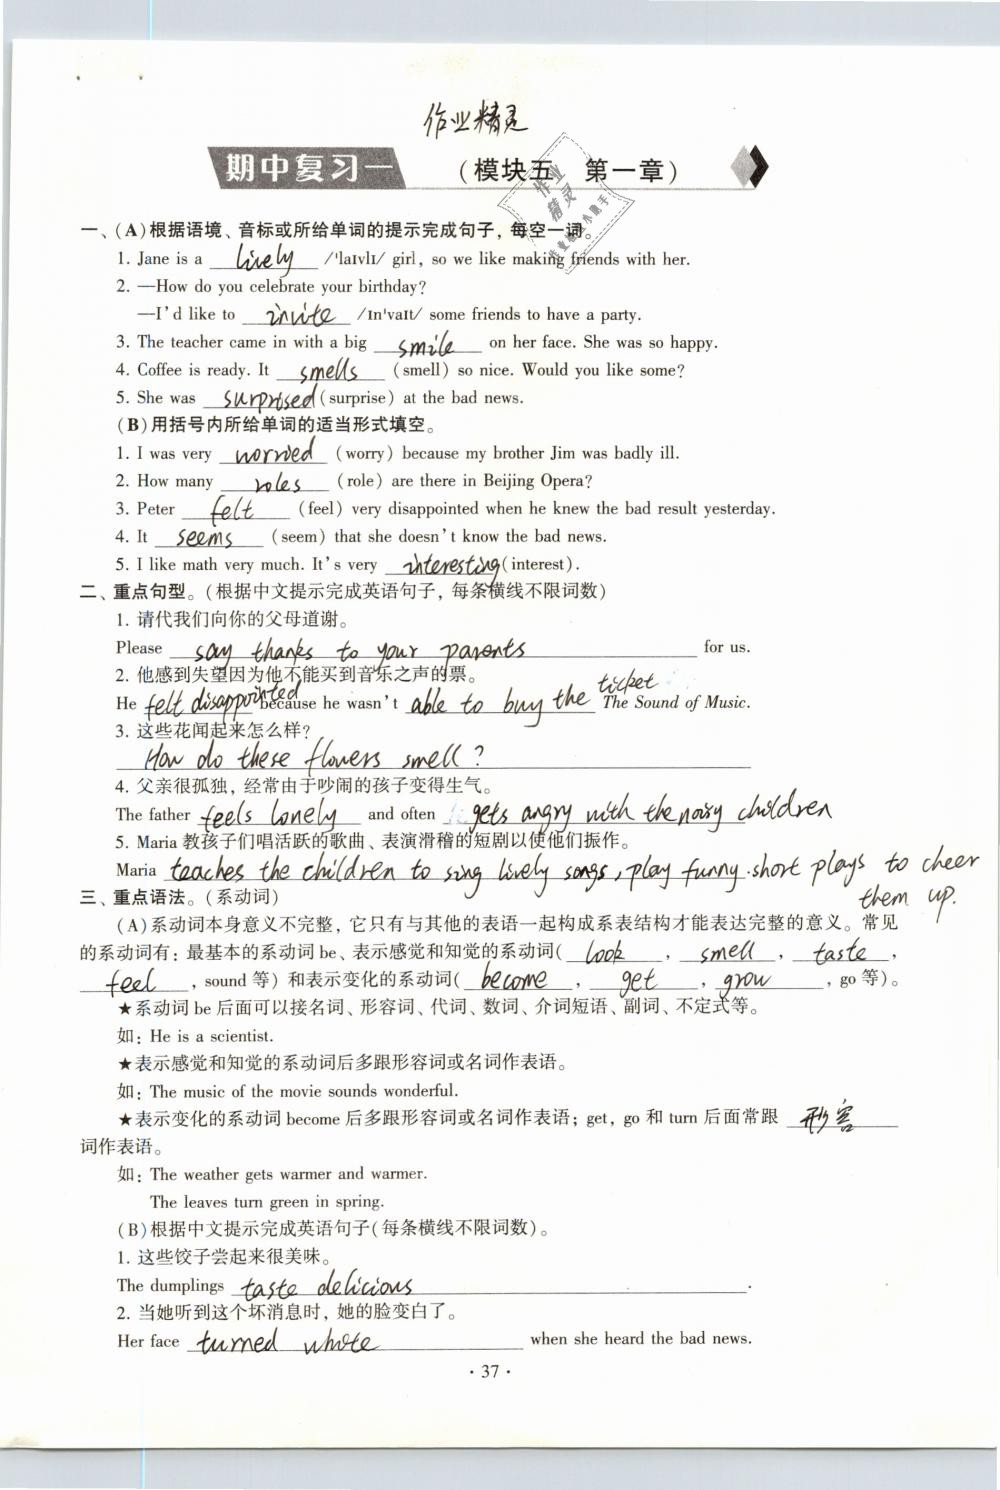 作业精灵
期中复习一 (模块五 第一章)
作业
精灵
一、(A)根据语境、音标或所给单词的提示完成句子，每空一词。
1. Jane is a lively /'laɪvlɪ/ girl, so we like making friends with her.
2. —How do you celebrate your birthday?
—I'd like to invite /ɪn'vaɪt/ some friends to have a party.
3. The teacher came in with a big smile on her face. She was so happy.
4. Coffee is ready. It smells (smell) so nice. Would you like some?
5. She was surprised (surprise) at the bad news.
(B)用括号内所给单词的适当形式填空。
1. I was very worried (worry) because my brother Jim was badly ill.
2. How many roles (role) are there in Beijing Opera?
3. Peter felt (feel) very disappointed when he knew the bad result yesterday.
4. It seems (seem) that she doesn't know the bad news.
5. I like math very much. It's very interesting (interest).
二、重点句型。(根据中文提示完成英语句子，每条横线不限词数)
1. 请代我们向你的父母道谢。
Please say thanks to your parents for us.
2. 他感到失望因为他不能买到音乐之声的票。
He felt disappointed because he wasn't able to buy the ticket The Sound of Music.
3. 这些花闻起来怎么样?
How do these flowers smell?
4. 父亲很孤独，经常由于吵闹的孩子变得生气。
The father feels lonely and often gets angry with the noisy children
5. Maria 教孩子们唱活跃的歌曲、表演滑稽的短剧以使他们振作。
Maria teaches the children to sing lively songs, play funny short plays to cheer
them up.
三、重点语法。(系动词)
(A)系动词本身意义不完整，它只有与其他的表语一起构成系表结构才能表达完整的意义。常见
的系动词有：最基本的系动词 be、表示感觉和知觉的系动词( look , smell , taste ,
feel , sound 等) 和表示变化的系动词( become , get , grow , go 等)。
★系动词 be 后面可以接名词、形容词、代词、数词、介词短语、副词、不定式等。
如: He is a scientist.
★表示感觉和知觉的系动词后多跟形容词或名词作表语。
如: The music of the movie sounds wonderful.
★表示变化的系动词 become 后多跟形容词或名词作表语; get, go 和 turn 后面常跟 形容
词作表语。
如: The weather gets warmer and warmer.
The leaves turn green in spring.
(B)根据中文提示完成英语句子(每条横线不限词数)。
1. 这些饺子尝起来很美味。
The dumplings taste delicious .
2. 当她听到这个坏消息时，她的脸变白了。
Her face turned white when she heard the bad news.
· 37 ·